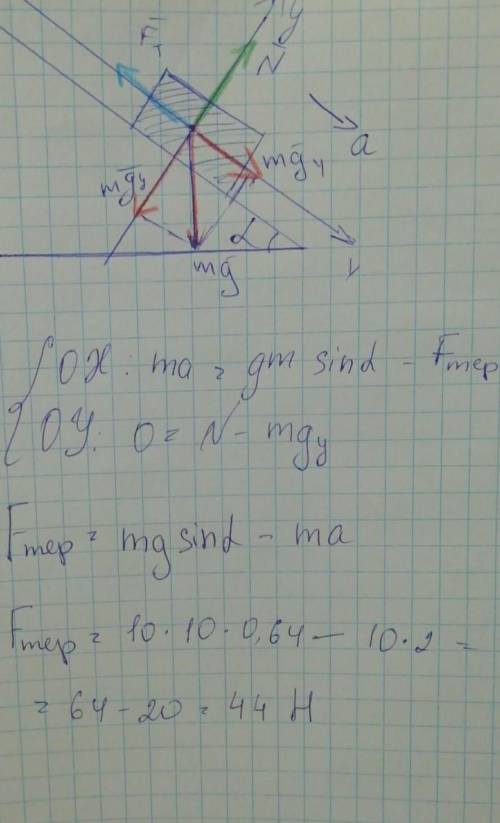 y
F̄т
N̄
a
mḡy
mḡy
α
mḡ
{ OX : ma = gm sinα - Fтер
OY: 0 = N - mgy
Fтер = mg sinα - ma
Fтер = 10·10·0,64 - 10·2 =
= 64 - 20 = 44 Н